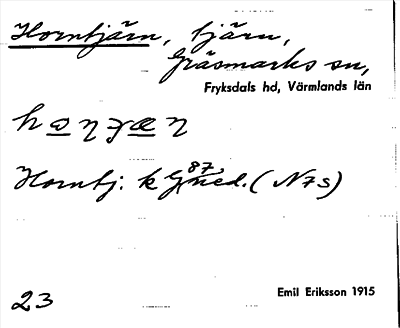 Horntjärn, tjärn,
Gräsmarks sn,
Fryksdals hd, Värmlands län
Horntj: k G87ned. (N7S)
23
Emil Eriksson 1915